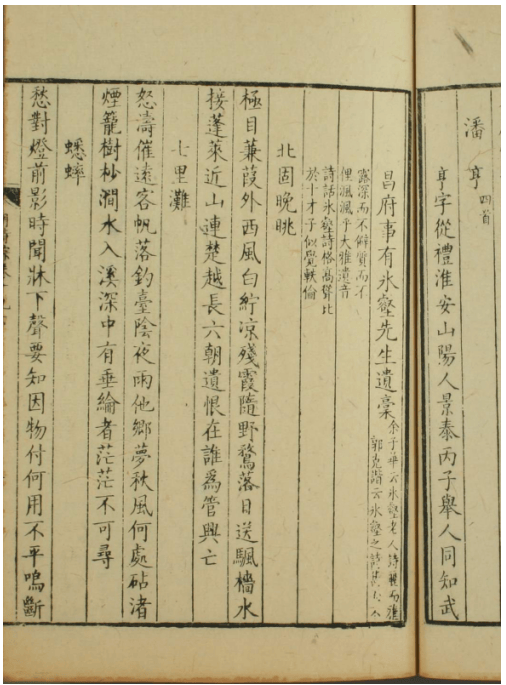 潘亨 四首
亨字從禮淮安山陽人景泰丙子舉人同知武
昌府事有氷壑先生遺稾
子華云氷壑老人詩麗而
郭克諧云氷壑之詩不
露深而不僻質而不
俚渢渢乎大雅遺音
詩話氷壑詩格高聲比
於十才子似覺軼倫
北固晚眺
極目蒹葭外西風白紵凉殘霞隨野鶩落日送颿檣水
接蓬萊近山連楚越長六朝遺恨在誰爲管興亡
七里灘
怒濤催遠客帆落釣臺陰夜雨他鄉夢秋風何處砧渚
煙籠樹杪澗水入溪深中有垂綸者茫茫不可尋
蟋蟀
愁對燈前影時聞牀下聲要知因物付何用不平鳴斷